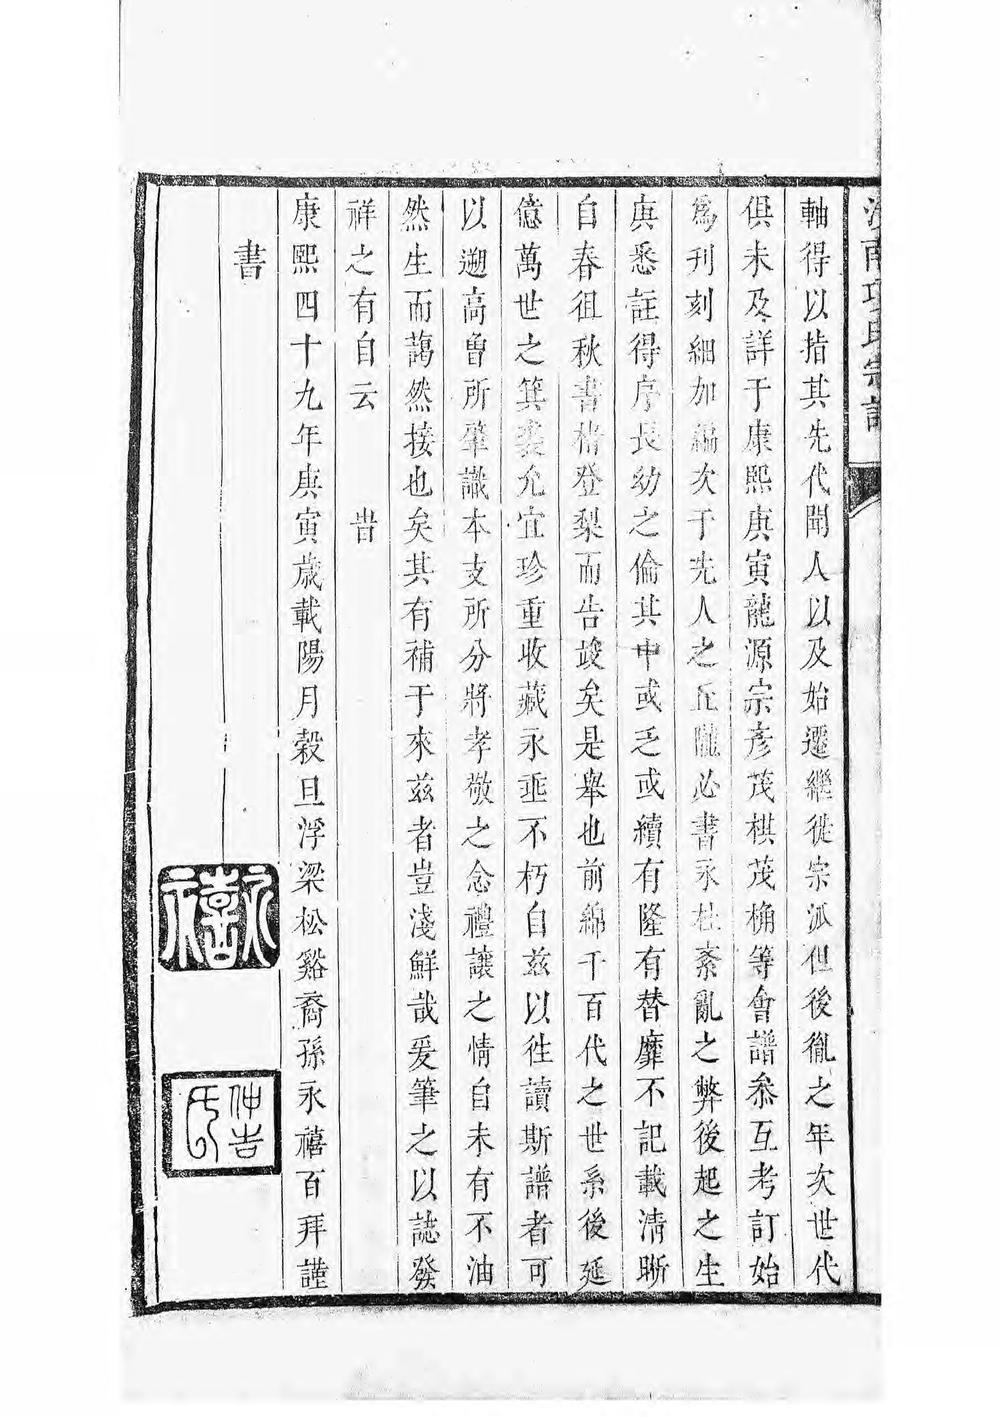 南項氏宗譜
軸得以指其先代聞人以及始遷繼從宗派但後胤之年次世代
俱未及詳于康熙庚寅龍源宗彥茂棋茂桷等會譜叅互考訂始
為刊刻細加編次于先人之丘隴必書永杜紊亂之弊後起之生
庚悉註得序長幼之倫其中或乏或續有隆有替靡不記載清晰
自春徂秋書棺登梨而告竣矣是舉也前綿千百代之世系後延
億萬世之箕裘允宜珍重收藏永垂不朽自兹以徃讀斯譜者可
以遡高曾所肇識本支所分將孝敬之念禮讓之情自未有不油
然生而藹然接也矣其有補于來兹者豈淺鮮哉爰筆之以誌發
祥之有自云　　　旹
康熙四十九年庚寅歲載陽月穀旦浮梁松谿裔孫永禧百拜謹
書
永禧
仲吉氏